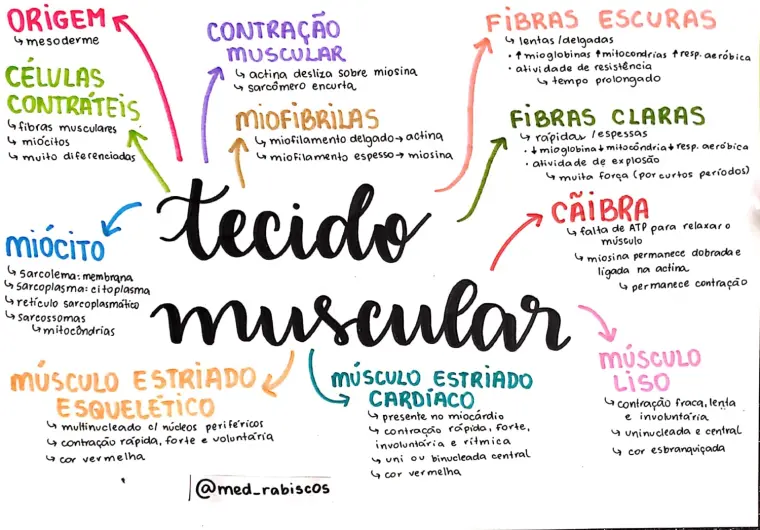 ORIGEM
↳ mesoderme
CÉLULAS
CONTRÁTEIS
↳ fibras musculares
↳ miócitos
↳ muito diferenciadas
CONTRAÇÃO
MUSCULAR
↳ actina desliza sobre miosina
↳ sarcômero encurta
MIOFIBRILAS
↳ miofilamento delgado → actina
↳ miofilamento espesso → miosina
FIBRAS ESCURAS
↳ lentas /delgadas
• ↑ mioglobinas ↑ mitocondrias ↑ resp. aeróbica
• atividade de resistência
↳ tempo prolongado
FIBRAS CLARAS
↳ rápidas /espessas
• ↓ mioglobina ↓ mitocôndria ↓ resp. aeróbica
• atividade de explosão
↳ muita força (por curtos períodos)
tecido
muscular
CÃIBRA
↳ falta de ATP para relaxar o
músculo
↳ miosina permanece dobrada e
ligada na actina
↳ permanece contração
MIÓCITO
↳ sarcolema: membrana
↳ sarcoplasma: citoplasma
↳ retículo sarcoplasmático
↳ sarcossomas
↳ mitocôndrias
MÚSCULO ESTRIADO
ESQUELÉTICO
↳ multinucleado c/ núcleos periféricos
↳ contração rápida, forte e voluntária
↳ cor vermelha
MÚSCULO ESTRIADO
CARDÍACO
↳ presente no miocárdio
↳ contração rápida, forte,
involuntária e rítmica
↳ uni ou binucleada central
↳ cor vermelha
MÚSCULO
LISO
↳ contração fraca, lenta
e involuntária
↳ uninucleada e central
↳ cor esbranquiçada
@med_rabiscos